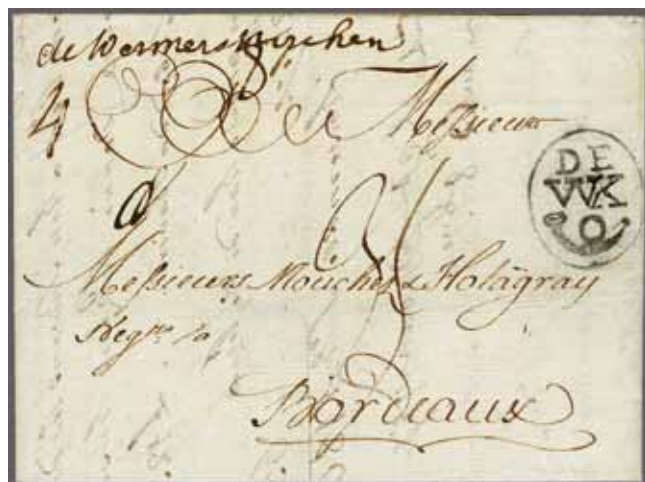 de Wermerskirchen
4 Messieurs
DE
WK
Messieurs Mouchet & Holagray
Negts a
Bordeaux